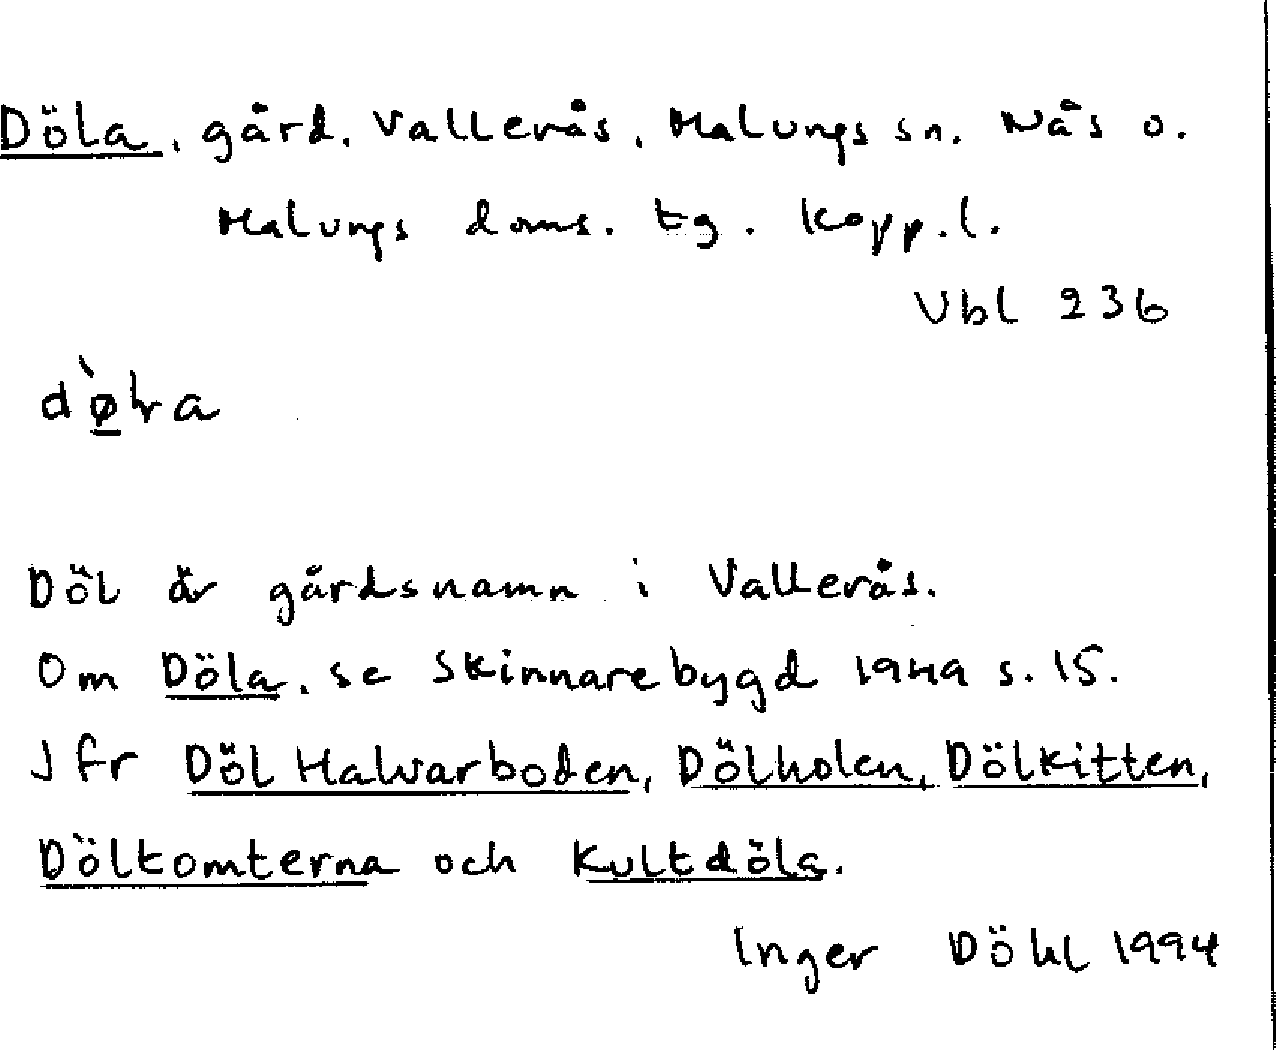 Döla, gård, Vallerås, Malungs sn. Nås o.
Malungs doms. tg. Kopp.l.
Vbl 236
Döl är gårdsnamn i Vallerås.
Om Döla, se Skinnarebygd 1949 s. 15.
Jfr Döl Halvarboden, Dölholen, Dölkitten,
Döltomterna och Kultdöla.
Inger Döhl 1994